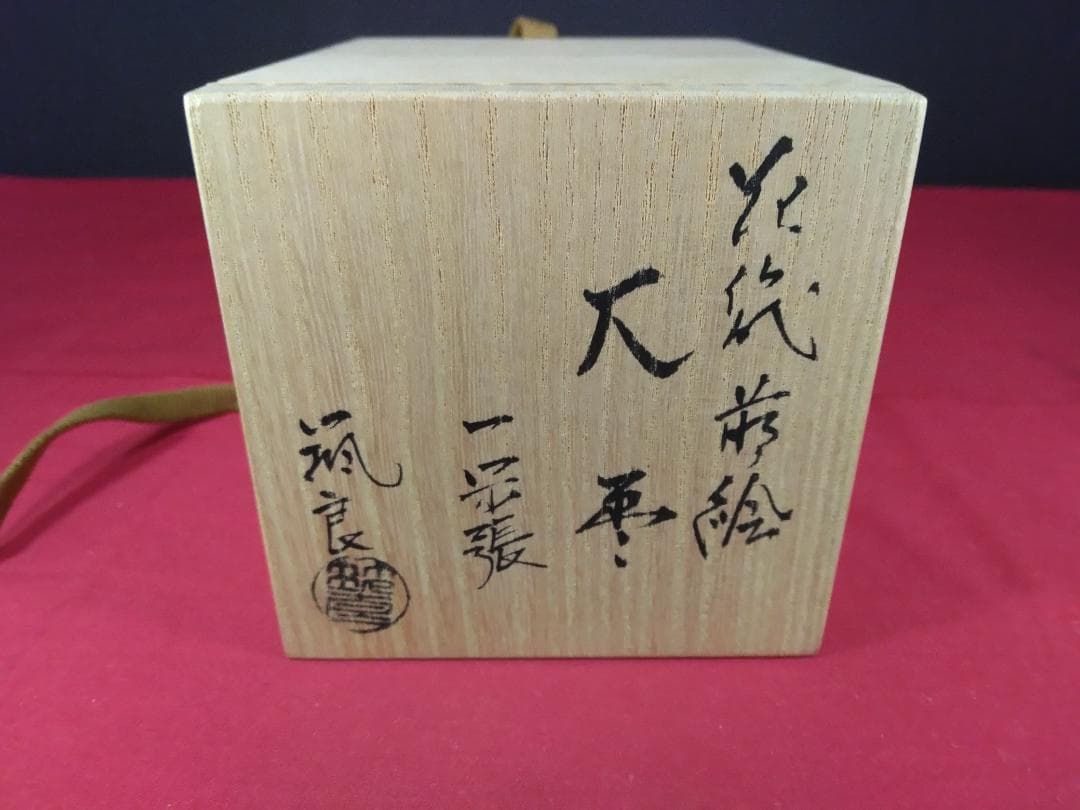 花筏蒔絵
大棗
一閑張
良